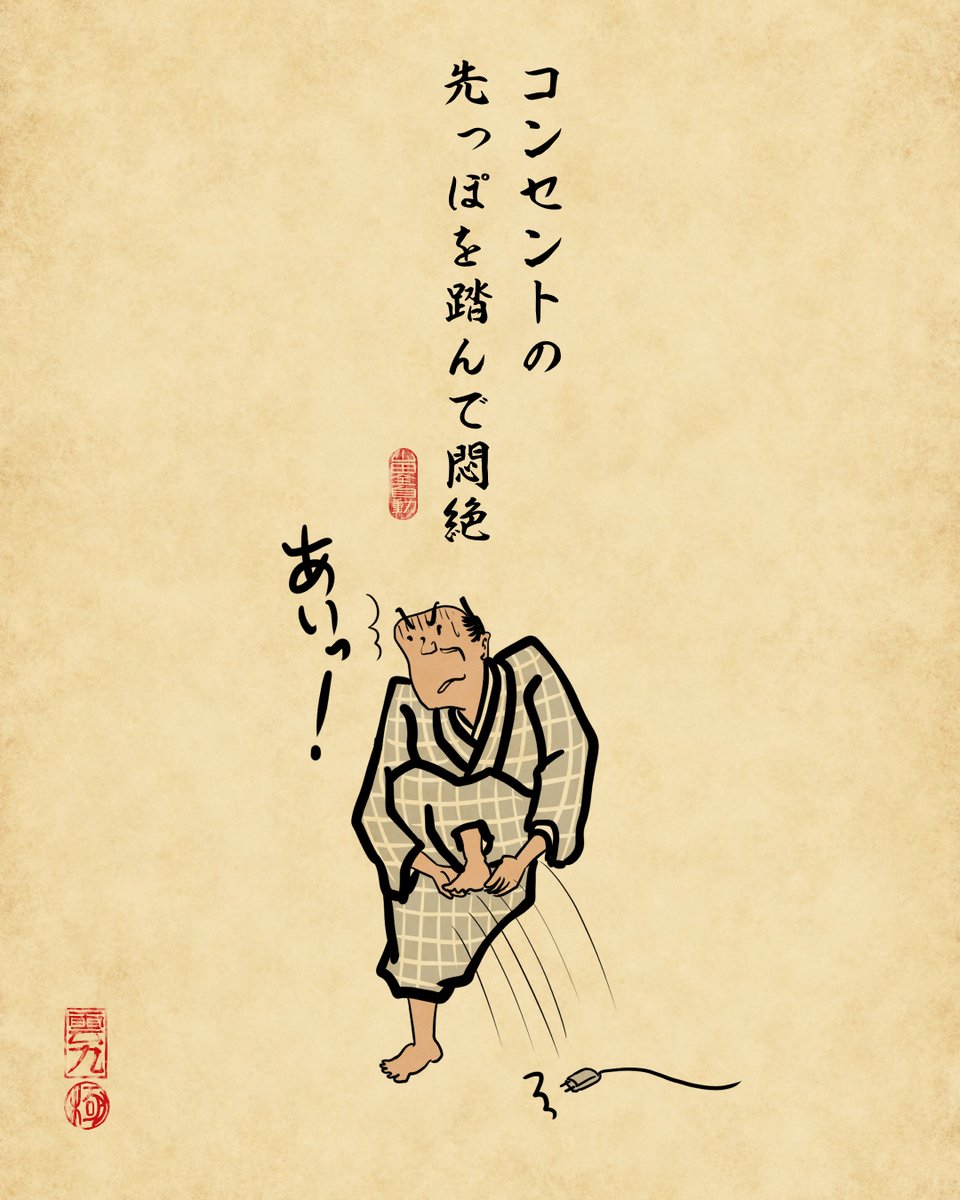 コンセントの
先っぽを踏んで悶絶
あいっー！
雲九
極